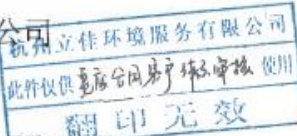 公司
杭州立佳环境服务有限公司
此件仅供合同客户审核使用
翻印无效